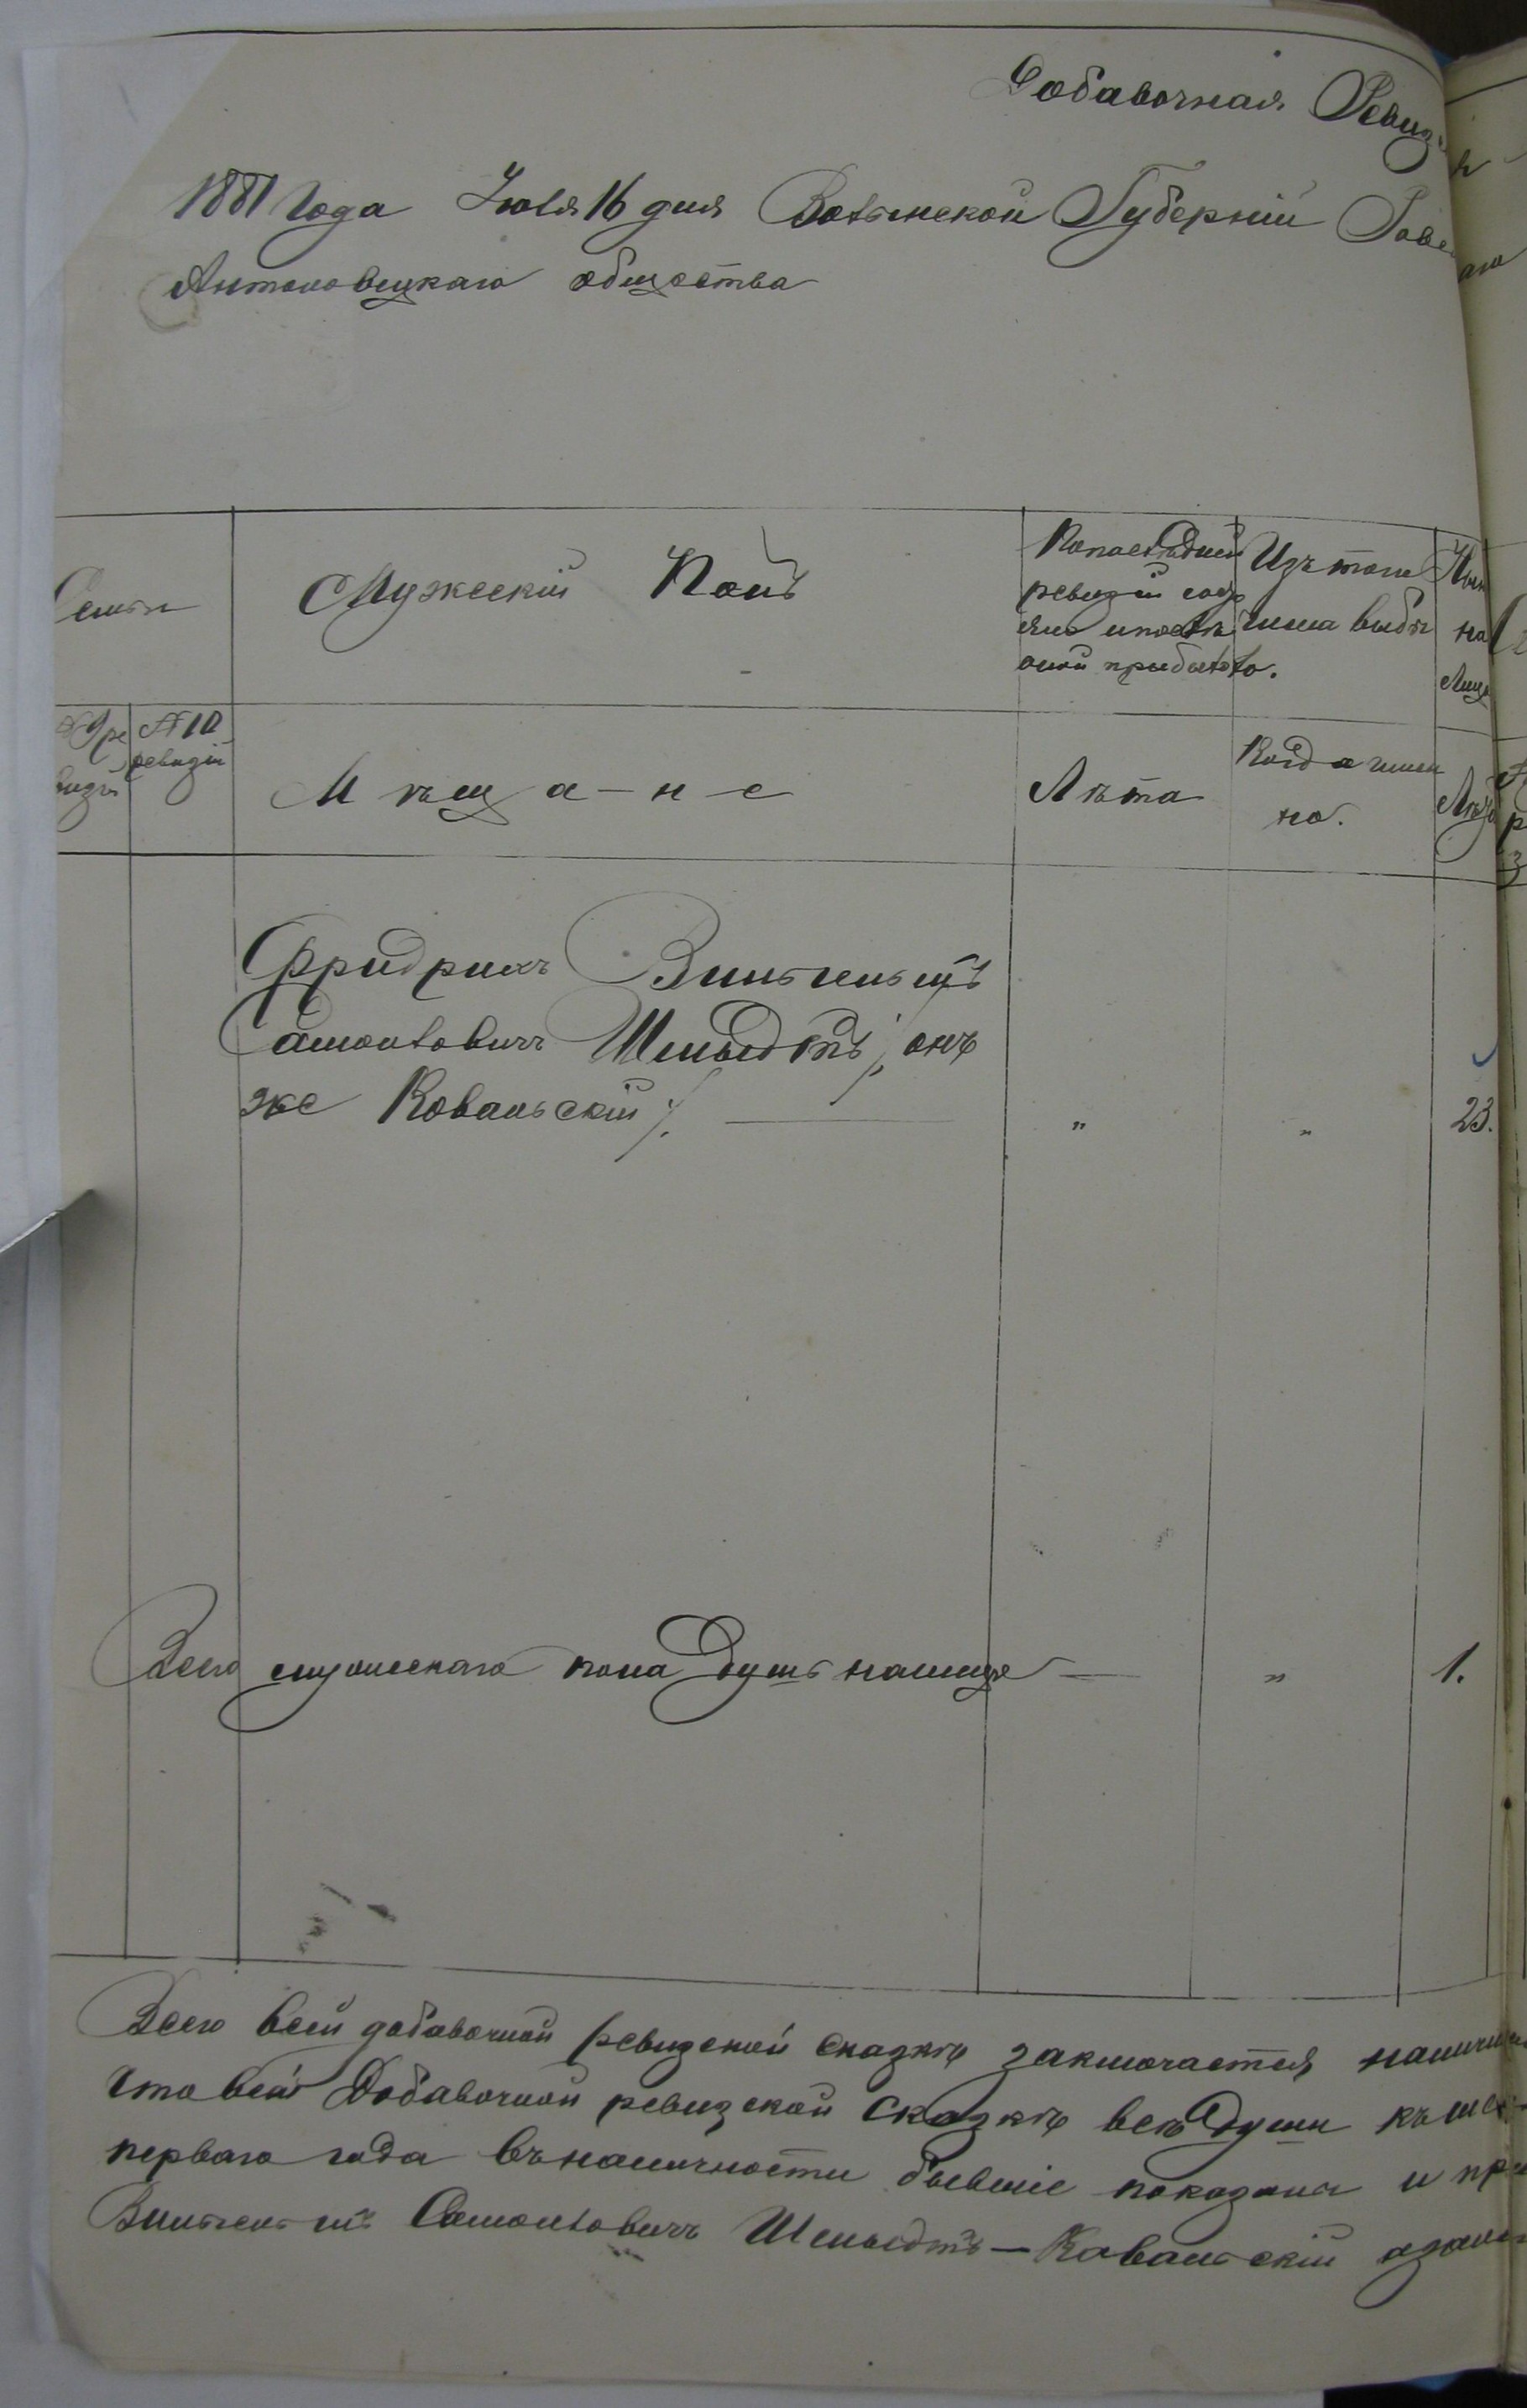 Добавочная Ревиз
1881 Года Іюля 16 дня Волынской Губерніи Рове
Антоновецкаго общества
Семьи
Мужескій Полъ
По последней
ревизіи сост
яло и после
оной прибыло
Изъ того
числа выбы
ло.
Нын
на
Лице
№ 9 ре
визіи
№ 10
ревизіи
Мѣща-н-е
Лѣта
Когда имен
но.
Лѣта
Фридрихъ Вильгельмъ
Самойловичъ Шмыдтъ /: онъ
же Ковальскій :/.
"
"
23.
Всего мужескаго пола душъ налице
"
1.
Всего в сей добавочной ревизской сказкѣ заключается налич
что в сей Добавочной ревизской сказкѣ все души къ
перваго года въ наличности бывшіе показаны и пр
Вильгельмъ Самойловичъ Шмыдтъ - Ковальскій